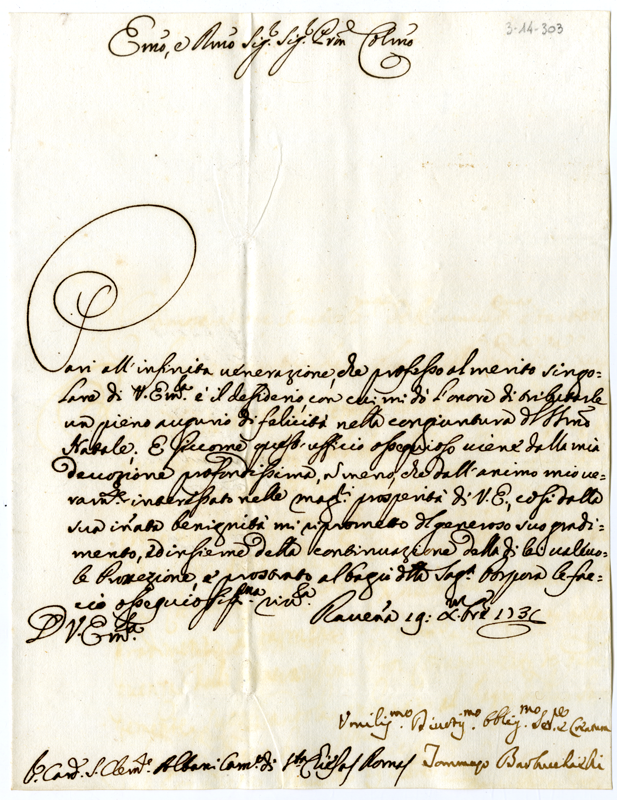 3-14-303
Emo, e Rmo Sig.r Sig.r Pron Colmo
Pari all'infinita venerazione, che professo al merito singo-
lare di V. Em.za è il desiderio, con cui mi dò l'onore di tributarle
un pieno augurio di felicità nella congiuntura del SSmo
Natale. E siccome quest'ufficio ossequioso viene dalla mia
devozione profondissima, a meno, che dall'animo mio ve-
ram.te interessato nelle magg.ri prosperità di V. E., così dalla
sua innata benignità mi riprometto del generoso suo gradi-
mento, ed insieme della continuazione della di lei valevo-
le Protezione, e prostrato al bagio della Sag.a Porpora le fac-
cio ossequiosiss.ma riv.za
D V. Em.za
Ravena 19: Xmbre 173
Umiliss.mo Divotiss.mo Obblig.mo Ser.e e Creatura
Sig. Card. S. Clem.te Albani Cam.o di Sta Chiesa Roma
Tommaso